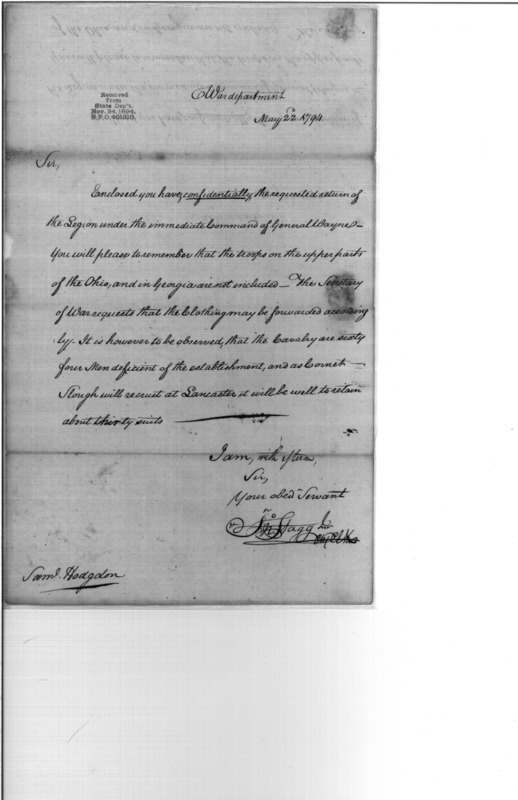 Removed
from
State Dep't.
Nov. 24, 1894.
R.P.O. 401220.
War department
May 22d. 1794.
Sir,
Enclosed you have, confidentially, the requested return of
the Legion under the immediate Command of General Wayne—
You will please to remember that the troops on the upper parts
of the Ohio, and in Georgia are not included— The Secretary
of War requests that the Clothing may be forwarded according
ly— It is however to be observed, that the Cavalry are sixty
four Men deficient of the establishment, and as Cornet
Slough will recruit at Lancaster it will be well to retain
about thirty suits
I am, with esteem,
Sir,
Your obedt. Servant
Jno Stagg Jnr
Saml. Hodgdon